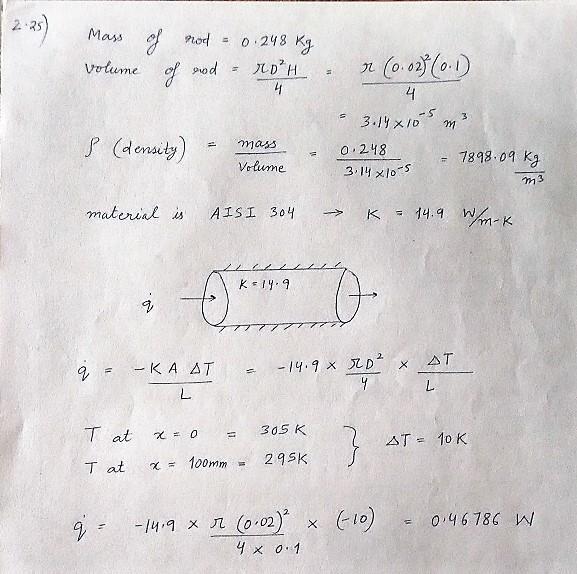 2.25)
Mass of rod = 0.248 Kg
Volume of rod = πD²H/4 = π(0.02)²(0.1)/4
= 3.14 × 10⁻⁵ m³
ρ (density) = mass/Volume = 0.248/3.14 × 10⁻⁵ = 7898.09 Kg/m³
material is AISI 304 → K = 14.9 W/m-K
K = 14.9
q̇
q̇ = -K A ΔT/L = -14.9 × πD²/4 × ΔT/L
T at x = 0 = 305 K
T at x = 100mm = 295K } ΔT = 10K
q̇ = -14.9 × π(0.02)²/4 × 0.1 × (-10) = 0.46786 W